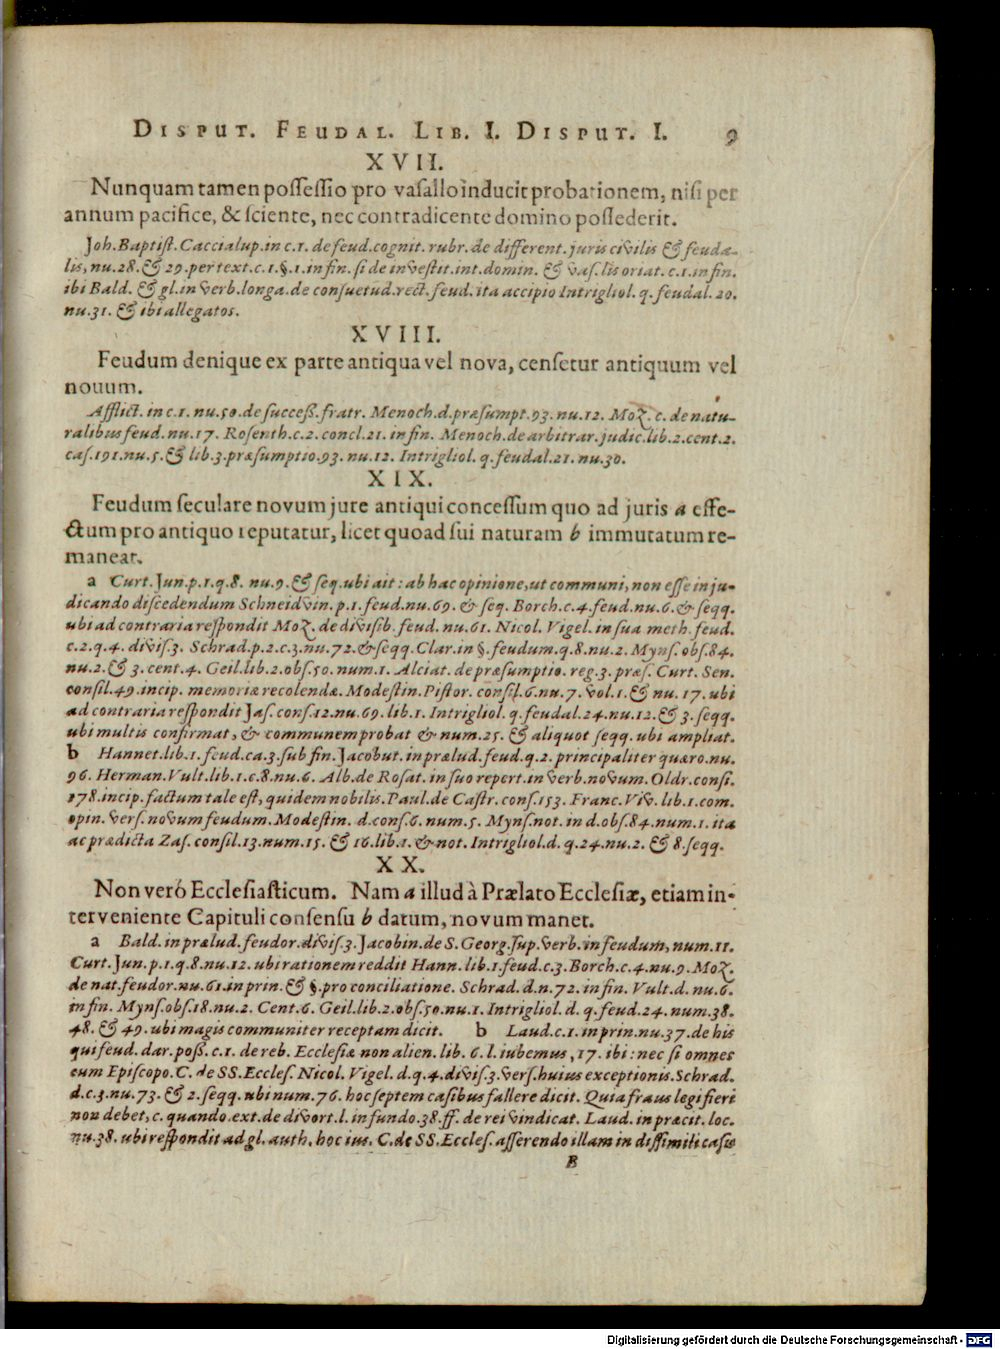 DISPUT. FEUDAL. LIB. I. DISPUT. I. 9
XVII.
Nunquam tamen possessio pro vasallo inducit probationem, nisi per
annum pacifice, & sciente, nec contradicente domino possederit.
Joh. Baptist. Caccialup. in c. 1. de feud. cognit. rubr. de different. juris civilis & feuda-
lis, nu. 28. & 29. per text. c. 1. §. 1. in fin. si de investit. int. domin. & vas. lis oriat. c. 1. in fin.
ibi Bald. & gl. in verb. longa. de consuetud. rect. feud. ita accipio Intrigliol. q. feudal. 20.
nu. 31. & ibi allegatos.
XVIII.
Feudum denique ex parte antiqua vel nova, censetur antiquum vel
nouum.
Afflict. in c. 1. nu. 50. de success. fratr. Menoch. d. præsumpt. 93. nu. 12. Moz. c. de natu-
ralibus feud. nu. 17. Rosenth. c. 2. concl. 21. in fin. Menoch. de arbitrar. judic. lib. 2. cent. 2.
cas. 191. nu. 5. & lib. 3. præsumptio. 93. nu. 12. Intrigliol. q. feudal. 21. nu. 30.
XIX.
Feudum seculare novum jure antiqui concessum quo ad juris a effe-
ctum pro antiquo reputatur, licet quoad sui naturam b immutatum re-
maneat.
a Curt. Jun. p. 1. q. 8. nu. 9. & seq. ubi ait: ab hac opinione, ut communi, non esse in ju-
dicando discedendum Schneidvin. p. 1. feud. nu. 69. & seq. Borch. c. 4. feud. nu. 6. & seqq.
ubi ad contraria respondit Moz. de divisib. feud. nu. 61. Nicol. Vigel. in sua meth. feud.
c. 2. q. 4. divis. 3. Schrad. p. 2. c. 3. nu. 72. & seqq. Clar. in §. feudum. q. 8. nu. 2. Myns. obs. 84.
nu. 2. & 3. cent. 4. Geil. lib. 2. obs. 50. num. 1. Alciat. de præsumptio. reg. 3. præs. Curt. Sen.
consil. 49. incip. memoriæ recolendæ. Modestin. Pistor. consil. 6. nu. 7. vol. 1. & nu. 17. ubi
ad contraria respondit Jas. cons. 12. nu. 69. lib. 1. Intrigliol. q. feudal. 24. nu. 12. & 3. seqq.
ubi multis confirmat, & communem probat & num. 25. & aliquot seqq. ubi ampliat.
b Hannet. lib. 1. feud. ca. 3. sub fin. Jacobut. in prælud. feud. q. 2. principaliter quæro. nu.
96. Herman. Vult. lib. 1. c. 8. nu. 6. Alb. de Rosat. in suo repert. in verb. novum. Oldr. consi.
178. incip. factum tale est, quidem nobilis. Paul. de Castr. cons. 153. Franc. Viv. lib. 1. com.
opin. vers. novum feudum. Modestin. d. cons. 6. num. 5. Myns. not. in d. obs. 84. num. 1. ita
ac prædicta Zas. consil. 13. num. 15. & 16. lib. 1. & not. Intrigliol. d. q. 24. nu. 2. & 8. seqq.
XX.
Non veró Ecclesiasticum. Nam a illud à Prælato Ecclesiæ, etiam in-
terveniente Capituli consensu b datum, novum manet.
a Bald. in prælud. feudor. divis. 3. Jacobin. de S. Georg. sup. verb. in feudum, num. 11.
Curt. Jun. p. 1. q. 8. nu. 12. ubi rationem reddit Hann. lib. 1. feud. c. 3. Borch. c. 4. nu. 9. Moz.
de nat. feudor. nu. 61. in prin. & §. pro conciliatione. Schrad. d. n. 72. in fin. Vult. d. nu. 6.
in fin. Myns. obs. 18. nu. 2. Cent. 6. Geil. lib. 2. obs. 50. nu. 1. Intrigliol. d. q. feud. 24. num. 38.
48. & 49. ubi magis communiter receptam dicit. b Laud. c. 1. in prin. nu. 37. de his
qui feud. dar. poss. c. 1. de reb. Ecclesiæ non alien. lib. 6. l. iubemus, 17. ibi: nec si omnes
cum Episcopo. C. de SS. Eccles. Nicol. Vigel. d. q. 4. divis. 3. vers. huius exceptionis. Schrad.
d. c. 3. nu. 73. & 2. seqq. ubi num. 76. hoc septem casibus fallere dicit. Quia fraus legi fieri
non debet, c. quando. ext. de divort. l. in fundo. 38. ff. de rei vindicat. Laud. in præcit. loc.
nu. 38. ubi respondit ad gl. auth. hoc ius. C. de SS. Eccles. asserendo illam in dissimili casu
B
Digitalisierung gefördert durch die Deutsche Forschungsgemeinschaft - DFG